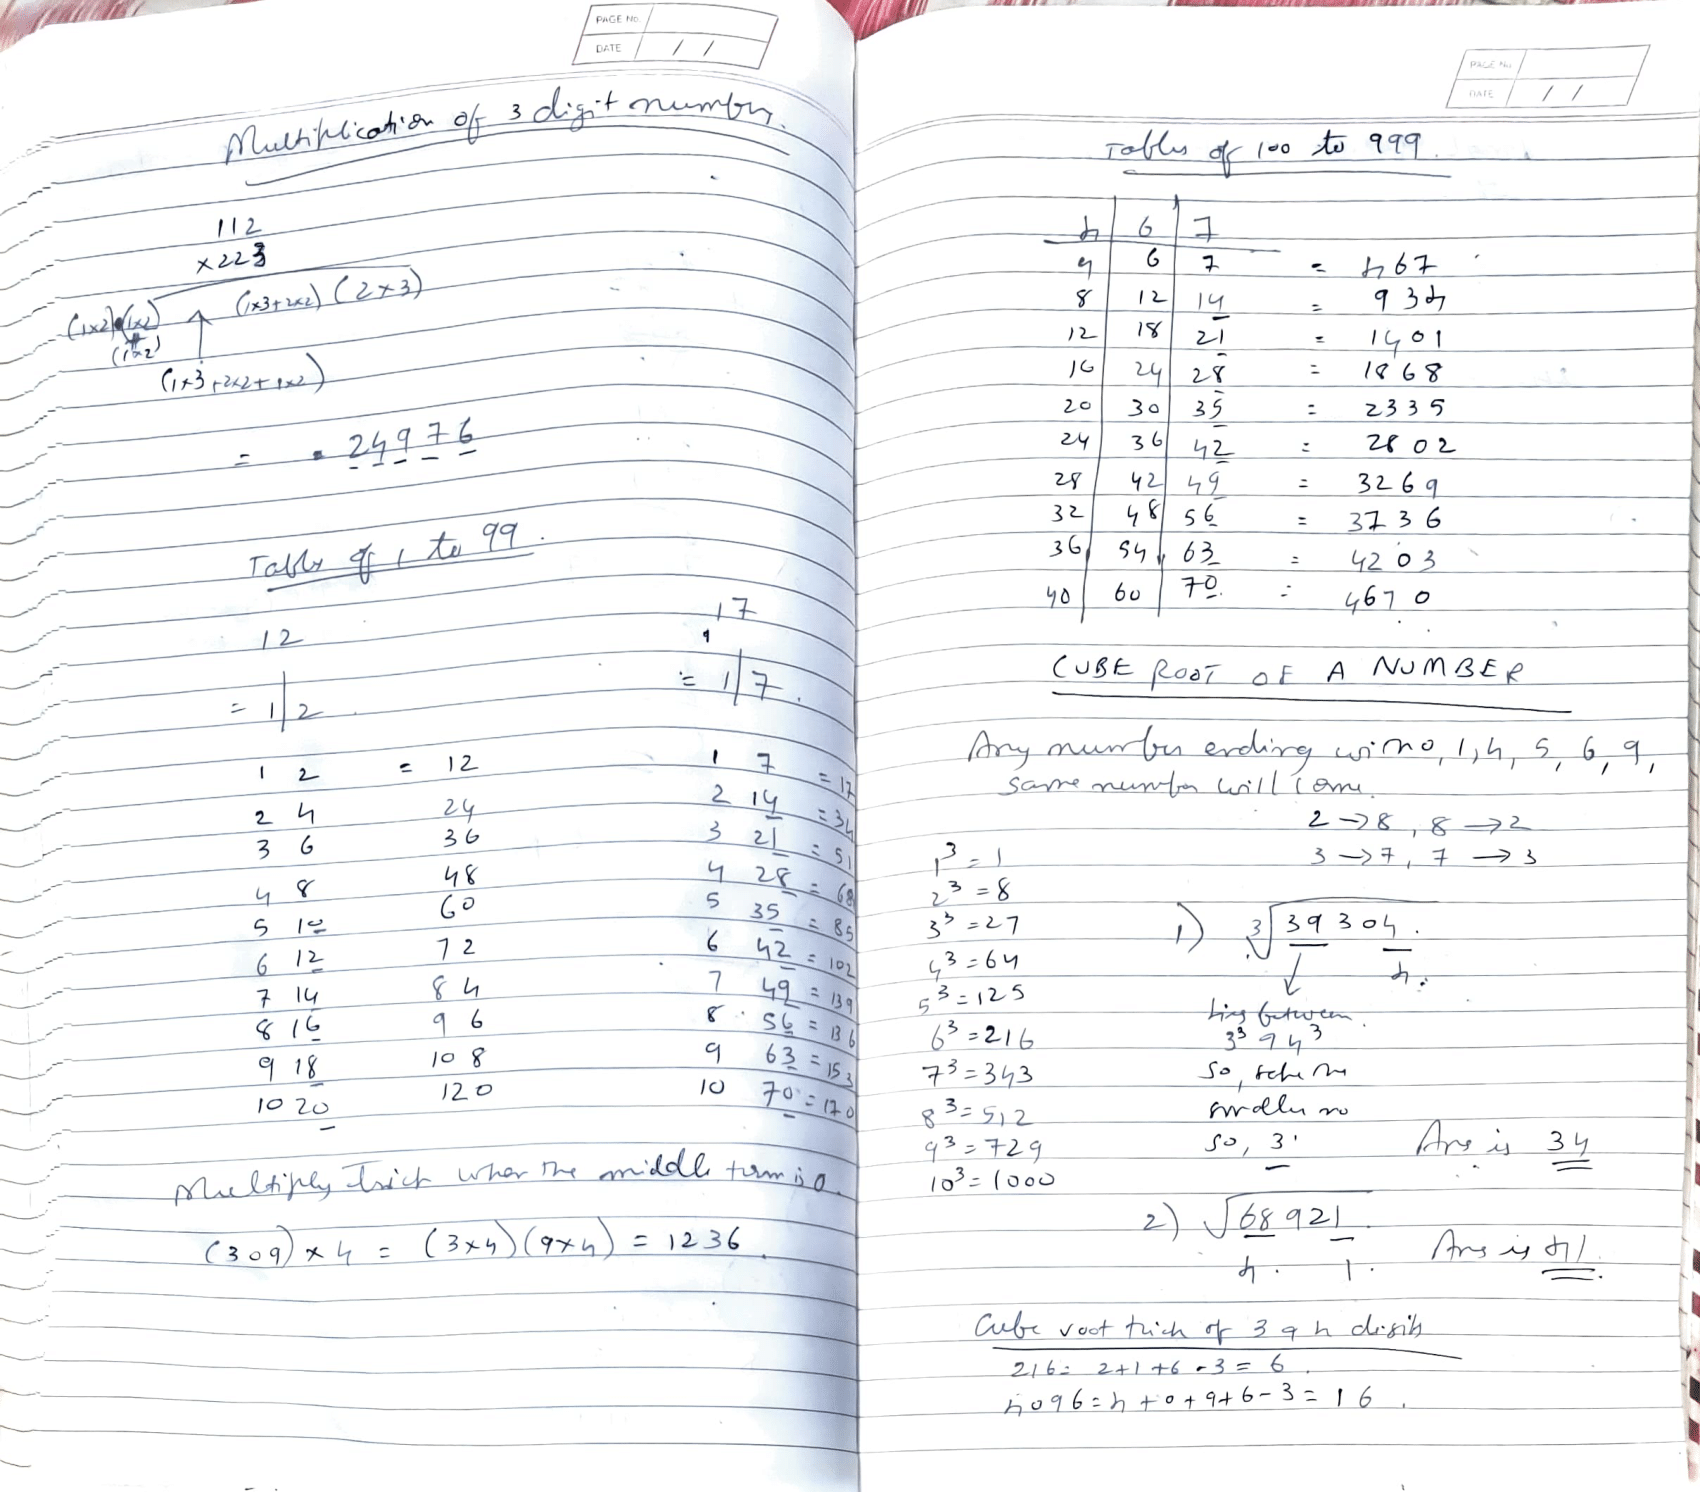 PAGE No.
DATE / /
Multiplication of 3 digit number.
112
×223
(1×2) (1×2) (1×3+2×2) (2×3)
(1×2)
(1×3+2×2+1×2)
= 24976
Tables of 1 to 99.
12 17
= 1|2 = 1|7.
1 2 = 12
2 4 24
3 6 36
4 8 48
5 10 60
6 12 72
7 14 84
8 16 96
9 18 108
10 20 120
1 7 = 17
2 14 = 34
3 21 = 51
4 28 = 68
5 35 = 85
6 42 = 102
7 49 = 139
8 56 = 136
9 63 = 153
10 70 = 170
Multiply Trick when the middle term is 0.
(309) × 4 = (3×4)(9×4) = 1236.
PAGE No.
DATE / /
Tables of 100 to 999.
4 | 6 | 7
4 6 7 = 467
8 12 14 = 934
12 18 21 = 1401
16 24 28 = 1868
20 30 35 = 2335
24 36 42 = 2802
28 42 49 = 3269
32 48 56 = 3736
36 54 63 = 4203
40 60 70. = 4670
CUBE ROOT OF A NUMBER
Any number ending with 0, 1, 4, 5, 6, 9,
same number will come.
2 → 8, 8 → 2
3 → 7, 7 → 3
1³ = 1
2³ = 8
3³ = 27
4³ = 64
5³ = 125
6³ = 216
7³ = 343
8³ = 512
9³ = 729
10³ = 1000
1) ³√39304.
4.
lies between.
3³ 9 4³
so, the
smaller no
so, 3. Ans is 34
2) √68921.
4. 1. Ans is 41.
Cube root trick of 3 9 4 digits
216 = 2+1+6-3 = 6.
4096 = 4+0+9+6-3 = 16.